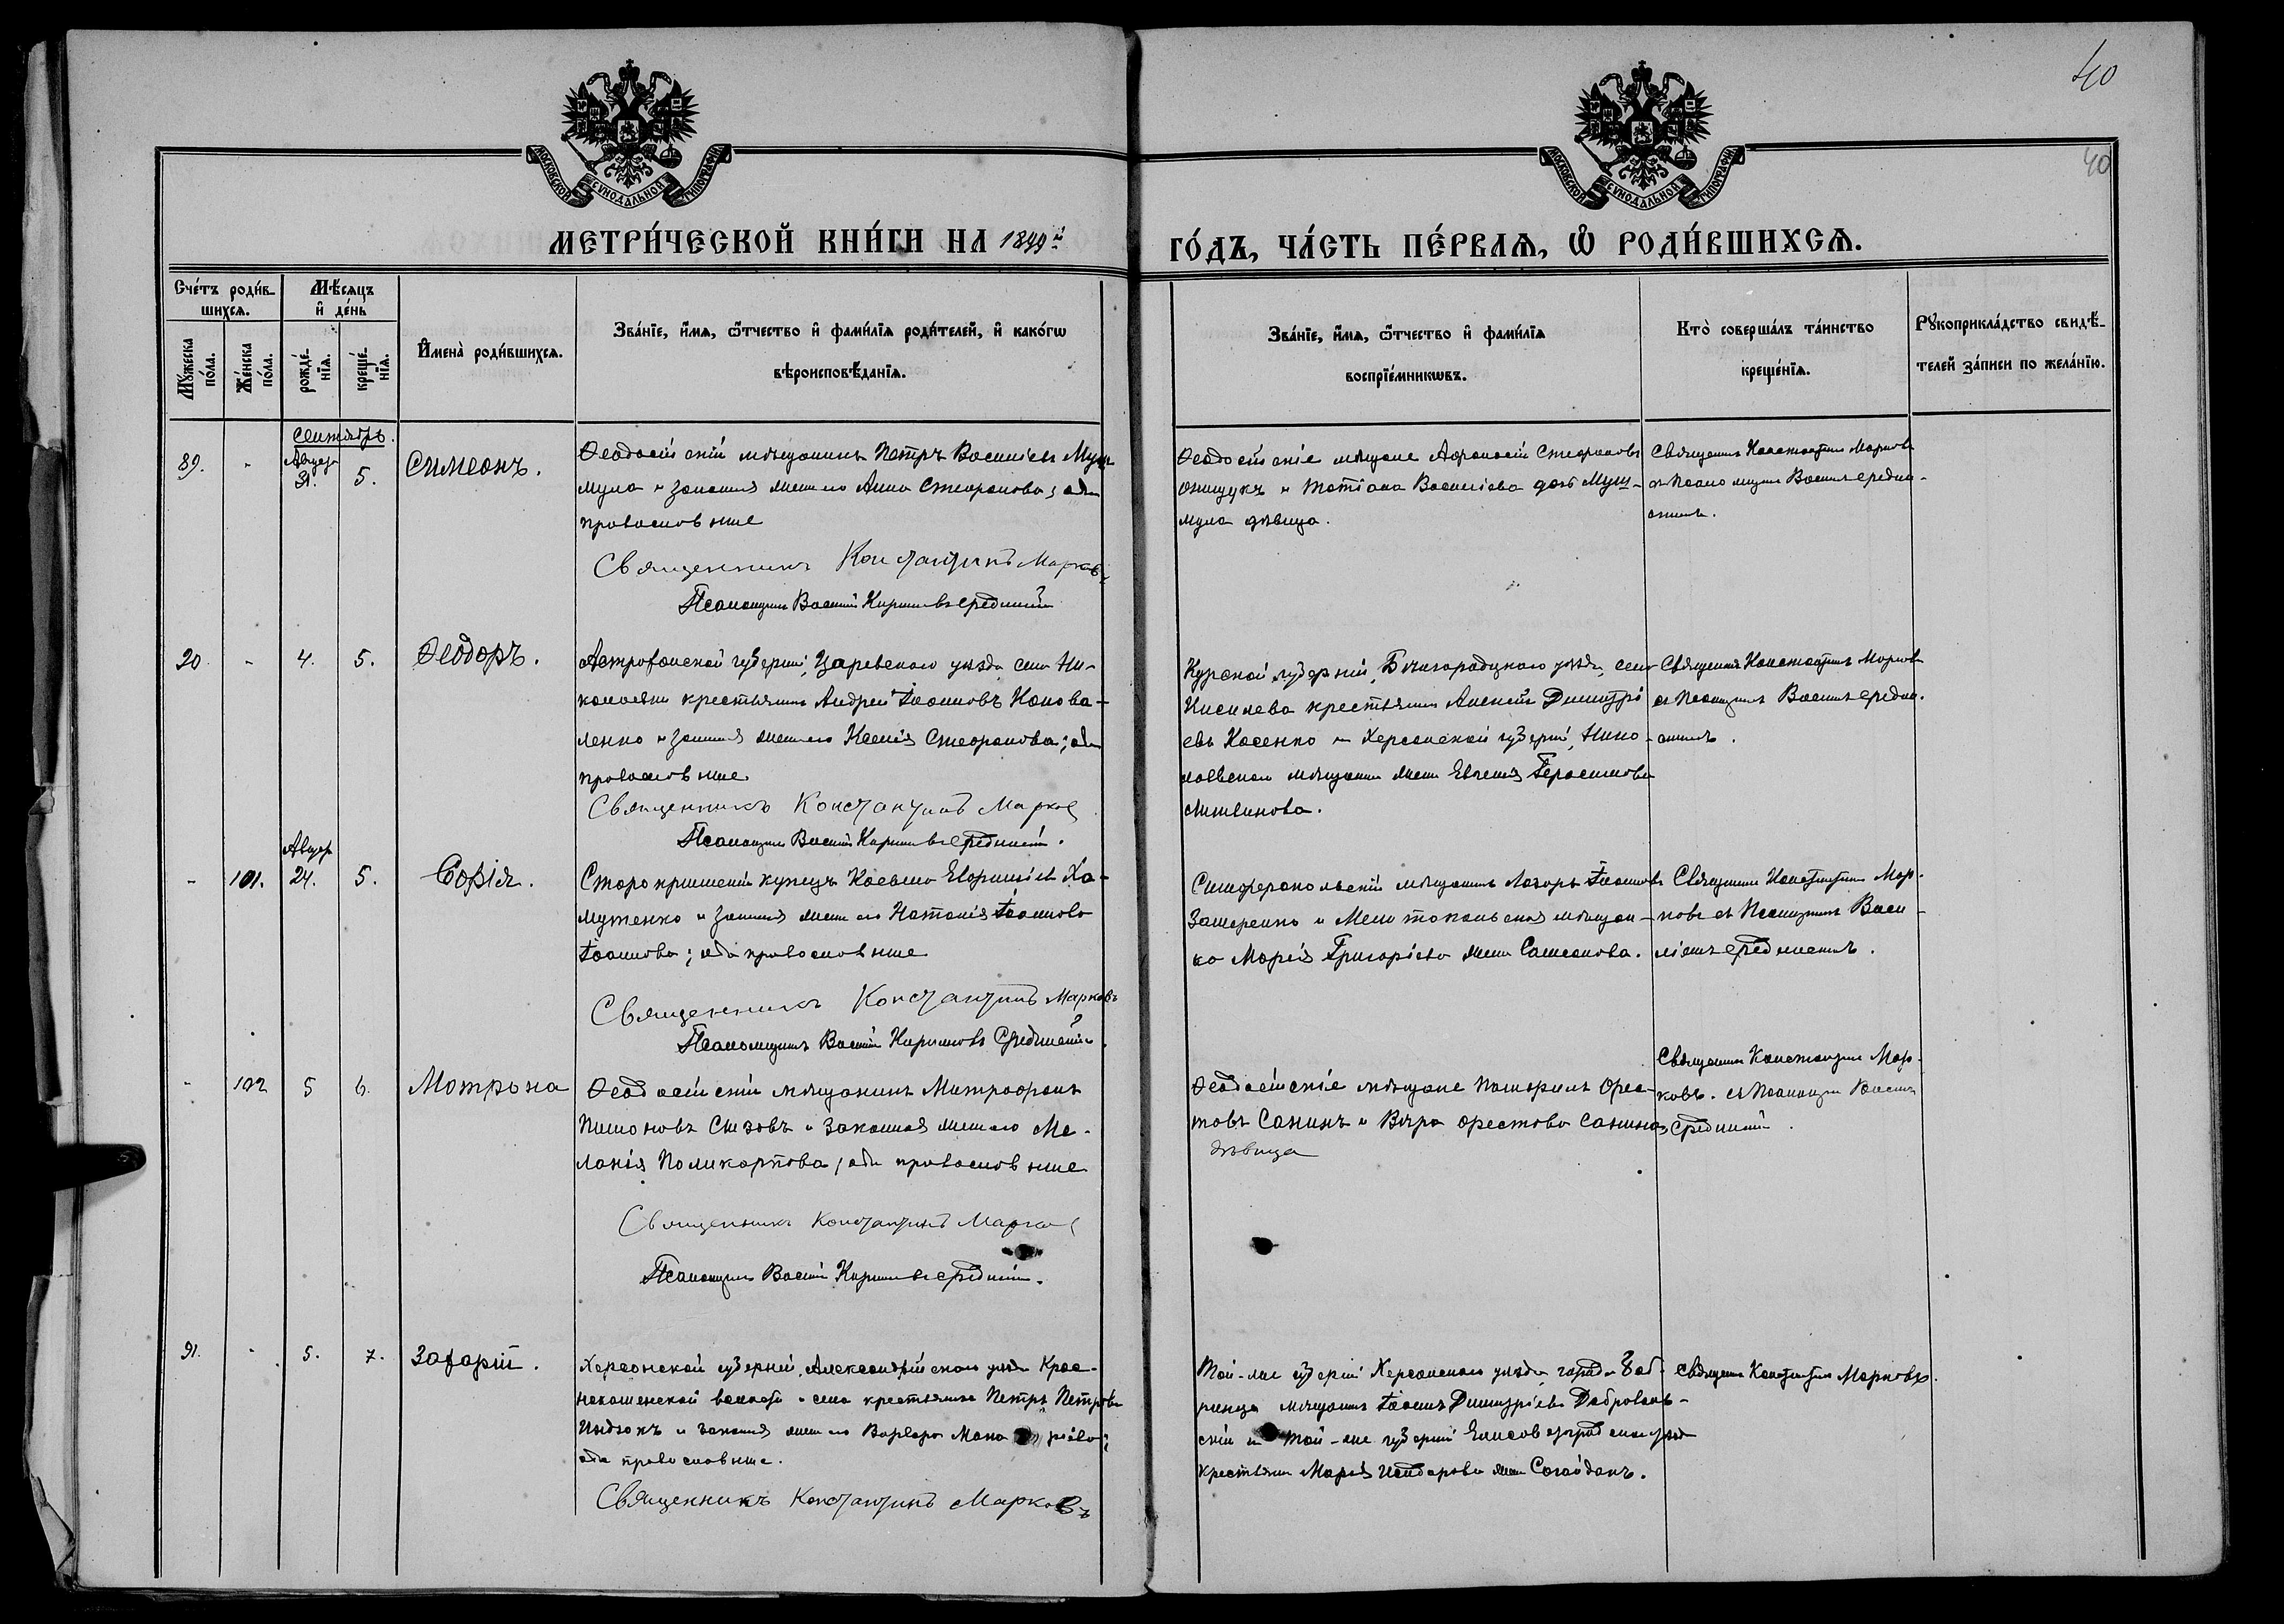 40
40
МОСКОВСКОЙ СѴНОДАЛЬНОЙ ТИПОГРАФІИ
МОСКОВСКОЙ СѴНОДАЛЬНОЙ ТИПОГРАФІИ
МЕТРИ́ЧЕСКОЙ КНИ́ГИ НА 1899й
ГО́ДЪ, ЧА́СТЬ ПЕ́РВАѦ, Ѡ РОДИ́ВШИХСѦ.
Сче́тъ роди́в-
шихсѧ.
Мѣ́сѧцъ
и҆ де́нь
Мꙋ́жеска
по́ла.
Же́нска
по́ла.
рожде́-
нїѧ.
креще́-
нїѧ.
И҆мена̀ роди́вшихсѧ.
Зва́нїе, и҆́мѧ, ѻ҆́тчество и҆ фами́лїѧ роди́телей, и҆ како́гѡ
вѣроисповѣ́данїѧ.
Зва́нїе, и҆́мѧ, ѻ҆́тчество и҆ фами́лїѧ
воспрїе́мникѡвъ.
Кто̀ соверша́лъ та́инство
креще́нїѧ.
Рꙋкоприкла́дство свидѣ́-
телей за́писи по жела́нїю.
Сентябрь.
89. - 31. 5. Симеонъ.
Ѳеодосійскій мѣщанинъ Петръ Василіевъ
мула и законная жена его Анна Стефанова; оба
православные
Священникъ Константинъ Марковъ
Псаломщикъ Василій Кирилловъ Средницкій
Ѳеодосійскіе мѣщане Афанасій Стефановъ
Онищукъ и Татіана Василіева дочь Муш-
мула дѣвица.
Священникъ Константинъ Марковъ
съ Псаломщикъ Василій
20. - 4. 5. Ѳеодоръ.
Астраханской губерніи, Царевскаго уѣзда села Ни-
колаевки крестьянинъ Андрей Іоанновъ Конова-
ленко и законная жена его Ксенія Стефанова; оба
православные.
Священникъ Константинъ Марковъ
Псаломщикъ Василій Кирилловъ Средницкій.
Курской губерніи, Бѣлгородцкаго уѣзда, села
Киселева крестьянинъ Алексѣй Димитрі
евъ Косенко и Херсонской губерніи, Нико-
лаевскаго мѣщанина жена Евгенія Герасимова
Литвинова.
Священникъ Константинъ Марковъ
съ Псаломщикъ Василій
- 101. 24. 5. Софія.
Старокрымскій купецъ Евфиміевъ Ха-
мутенко и законная жена его Наталія Іоаннова
Іоаннова; оба православные
Священникъ Константинъ Марковъ
Псаломщикъ Василій Кирилловъ Средницкій.
Симферопольскій мѣщанинъ Лазарь Іоанновъ
и Мелитопольская мѣщан-
ка Марія Григорієва жена Самсонова.
Священникъ Константинъ Мар-
ковъ съ Псаломщикъ Васи-
ліемъ Средницкимъ.
- 102 5 6. Матрона
Ѳеодосійскій мѣщанинъ Митрофанъ
Сизовъ и законная жена его Ме-
ланія Поликарпова, оба православные
Священникъ Константинъ Марковъ
Псаломщикъ Василій Кирилловъ Средницкій.
Ѳеодосійскіе мѣщане Памфилъ Орес-
товъ Санинъ и Вѣра Орестова Санина
дѣвица
Священникъ Константинъ Мар-
ковъ. съ Псаломщикъ Василій
Средницкій.
91. - 5. 7. Захарій.
Херсонской губерніи, Александрійскаго уѣзда Крас-
нокаменской волости и села крестьянинъ Петръ Петровъ
и законная жена его Варвара
оба православные.
Священникъ Константинъ Марковъ
Той-же губерніи Херсонскаго уѣзда города Боб-
ринца мѣщанинъ Іоаннъ Димитріевъ Добровол-
скій и той-же губерніи Елисаветградскаго уѣзда
крестьянка Марія Исидорова жена
Священникъ Константинъ Марковъ.